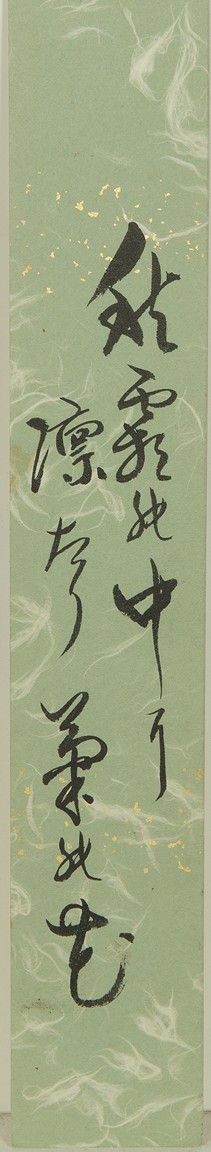 秋霜の中に
凛たり菊の花